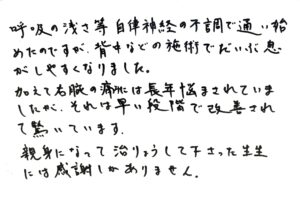 呼吸の浅さ等自律神経の不調で通い始
めたのですが、背中などの施術でだいぶ息
がしやすくなりました。
加えて右腕の痛みには長年悩まされていま
したが、それは早い段階で改善されて
驚いています。
親身になって治りょうして下さった先生
には感謝しかありません。